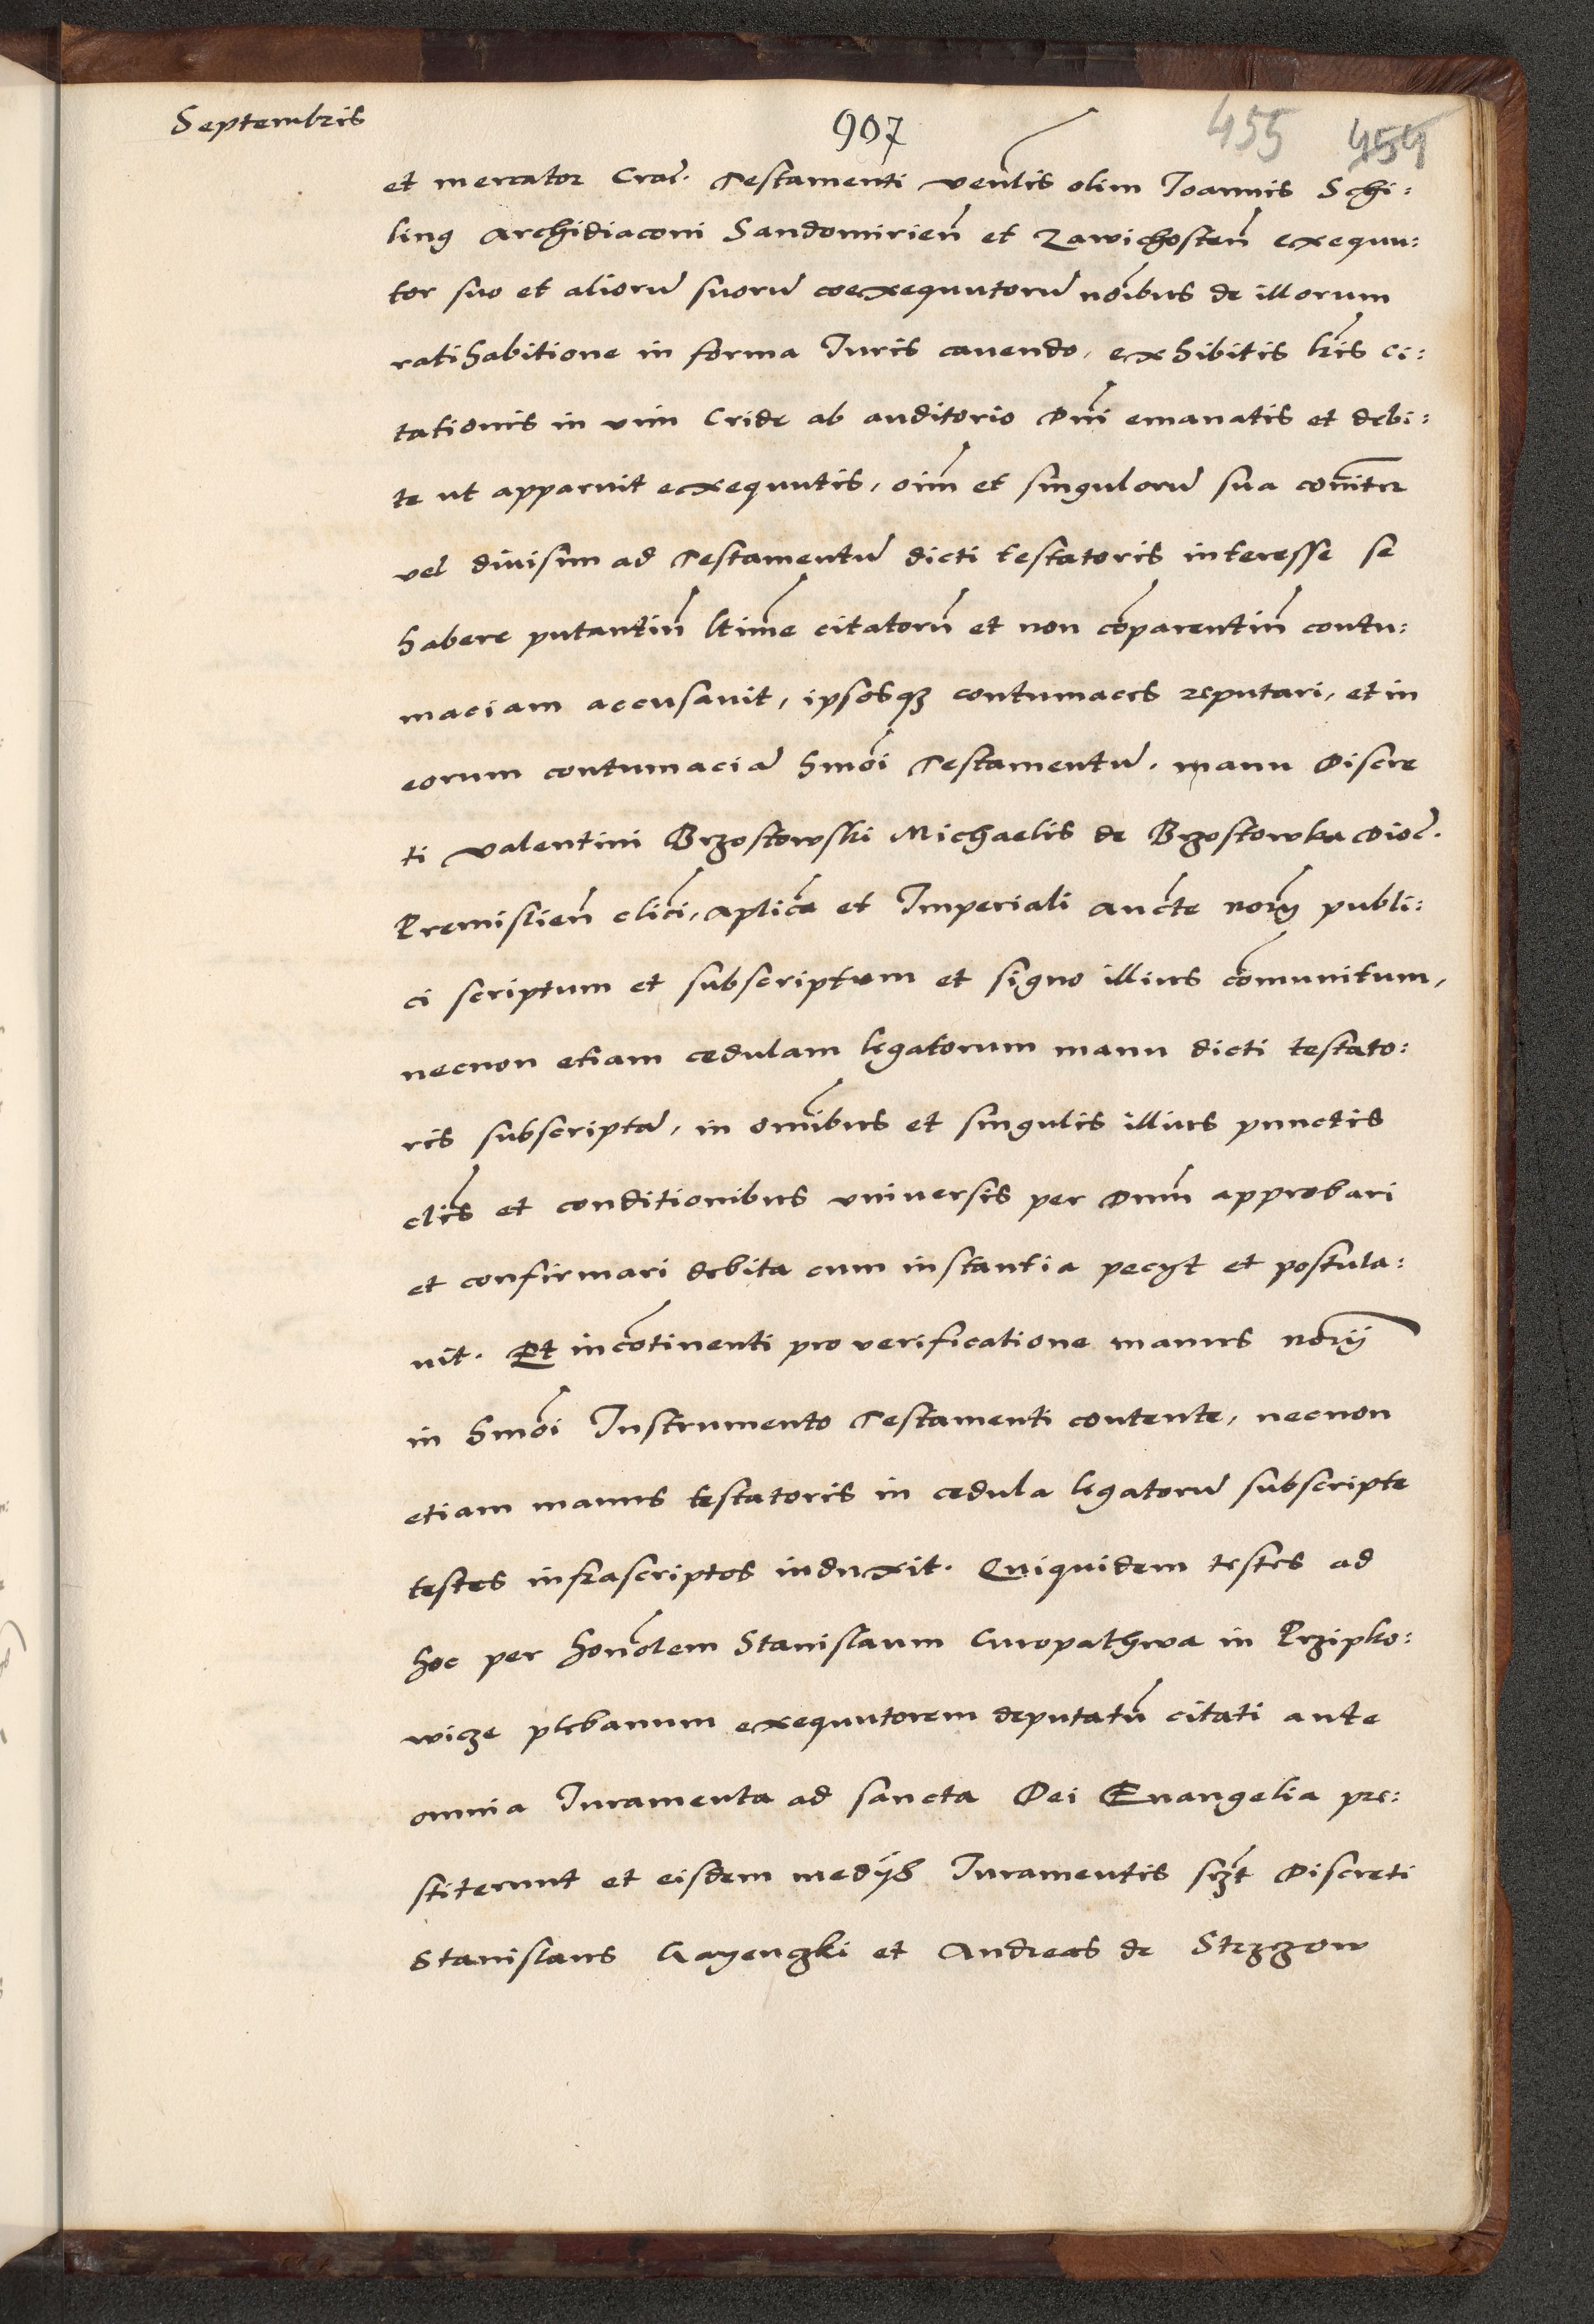 Septembris
907
455 454
et mercator Crac̃. Testamenti veñlis olim Joannis Schi:
ling Archidiaconi Sandomirieñ et Zawichosteñ exequu:
tor suo et aliorũ suorũ coexequutorũ noĩbus de illorum
ratihabitione in forma Juris cauendo, exhibitis lr̃is ci:
tationis in vim Cride ab auditorio Dñi emanatis et debi:
te ut apparuit exequutis, oĩm et singulorũ sua cõniter
vel diuisim ad Testamentũ dicti testatoris interesse se
habere putantiũ ltime citatorũ et non cõparentiũ contu:
maciam accusauit, ipsosqꝫ contumaces reputari, et in
eorum contumaciã hmõi Testamentũ. manu Discre
ti Valentini Brzostowski Michaelis de Brzostowka Dioc̃.
Premislieñ clici, Aplica et Imperiali aucte norÿ publi:
ci scriptum et subscriptum et signo illius cõmunitum,
necnon etiam cedulam legatorum manu dicti testato:
ris subscriptã, in omĩbus et singulis illius punctis
clis et conditionibus vniuersis per Dñm approbari
et confirmari debita cum instantia pecÿt et postula:
uit. Et incõtinenti pro verificatione manus norÿ
in hmõi Instrumento Testamenti contente, necnon
etiam manus testatoris in cedula legatorũ subscripte
testes infrascriptos induxit. Quiquidem testes ad
hoc per honõlem Stanislaum Curopathwa in Przipko:
wicze plebanum exequutorem deputatũ citati ante
omnia Juramenta ad sancta Dei Euangelia pre:
stiterunt et eisdem medÿs Juramentis Discreti
Stanislaus Gayenczki et Andreas de Strzzow